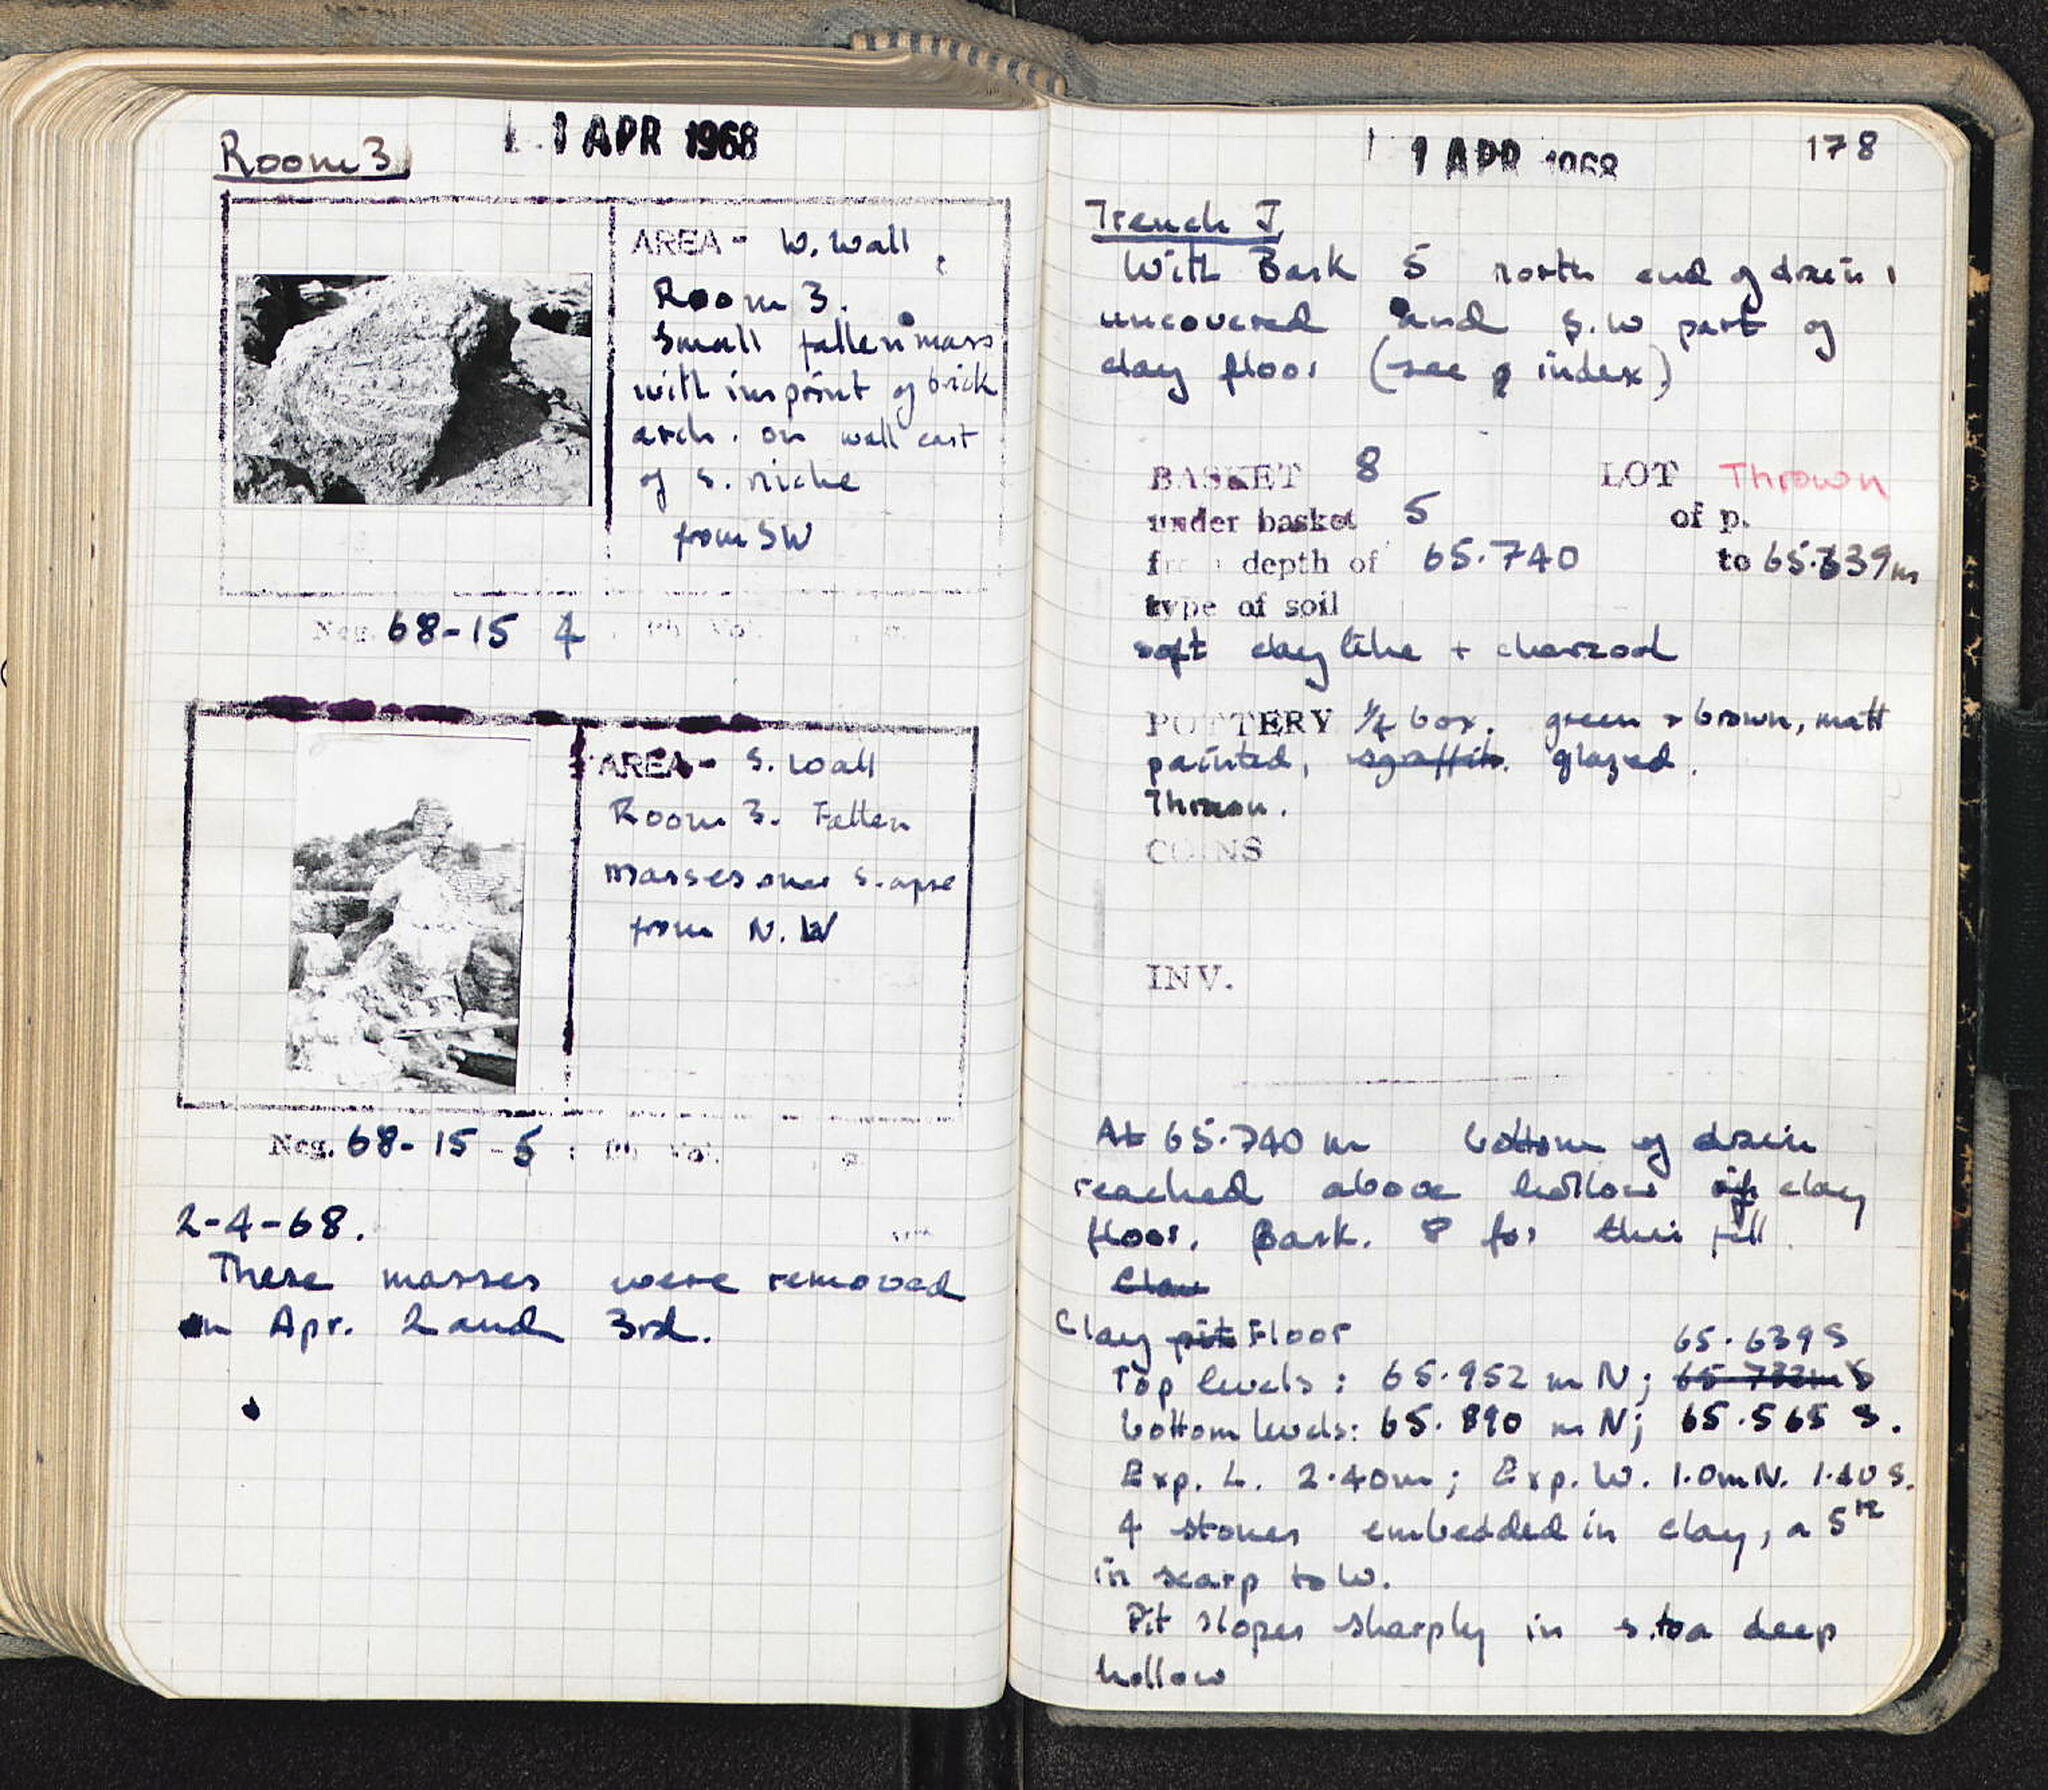 Room 3
1 APR 1968
AREA - W. Wall,
Room 3.
Small fallen mass
with imprint of brick
arch. on wall east
of S. niche
from SW
Neg. 68-15 4 : Ph. Vol. , p.
AREA - S. Wall
Room 3. Fallen
masses over S. apse
from N.W
Neg. 68-15-5 : Ph. Vol. , p.
2-4-68.
These masses were removed
on Apr. 2 and 3rd.
1 APR 1968
178
Trench J,
With Bask 5 north end of drain
uncovered and S.W part of
clay floor (see index)
BASKET 8 LOT Thrown
under basket 5 of p.
from depth of 65.740 to 65.639m
type of soil
soft clay like + charcoal
POTTERY 1/4 box. green & brown, matt
painted, sgraffito. glazed.
Thrown.
COINS
INV.
At 65.740 m bottom of drain
reached above hollow of clay
floor. Bask. 8 for this fill.
Clay
Clay pit Floor 65.639 S
Top levels: 65.952 m N; 65.732m S
bottom levels: 65.890 m N; 65.565 S.
Exp. L. 2.40m; Exp. W. 1.0m N. 1.40 S.
4 stones embedded in clay, a 5th
in scarp to W.
Pit slopes sharply in S. to a deep
hollow